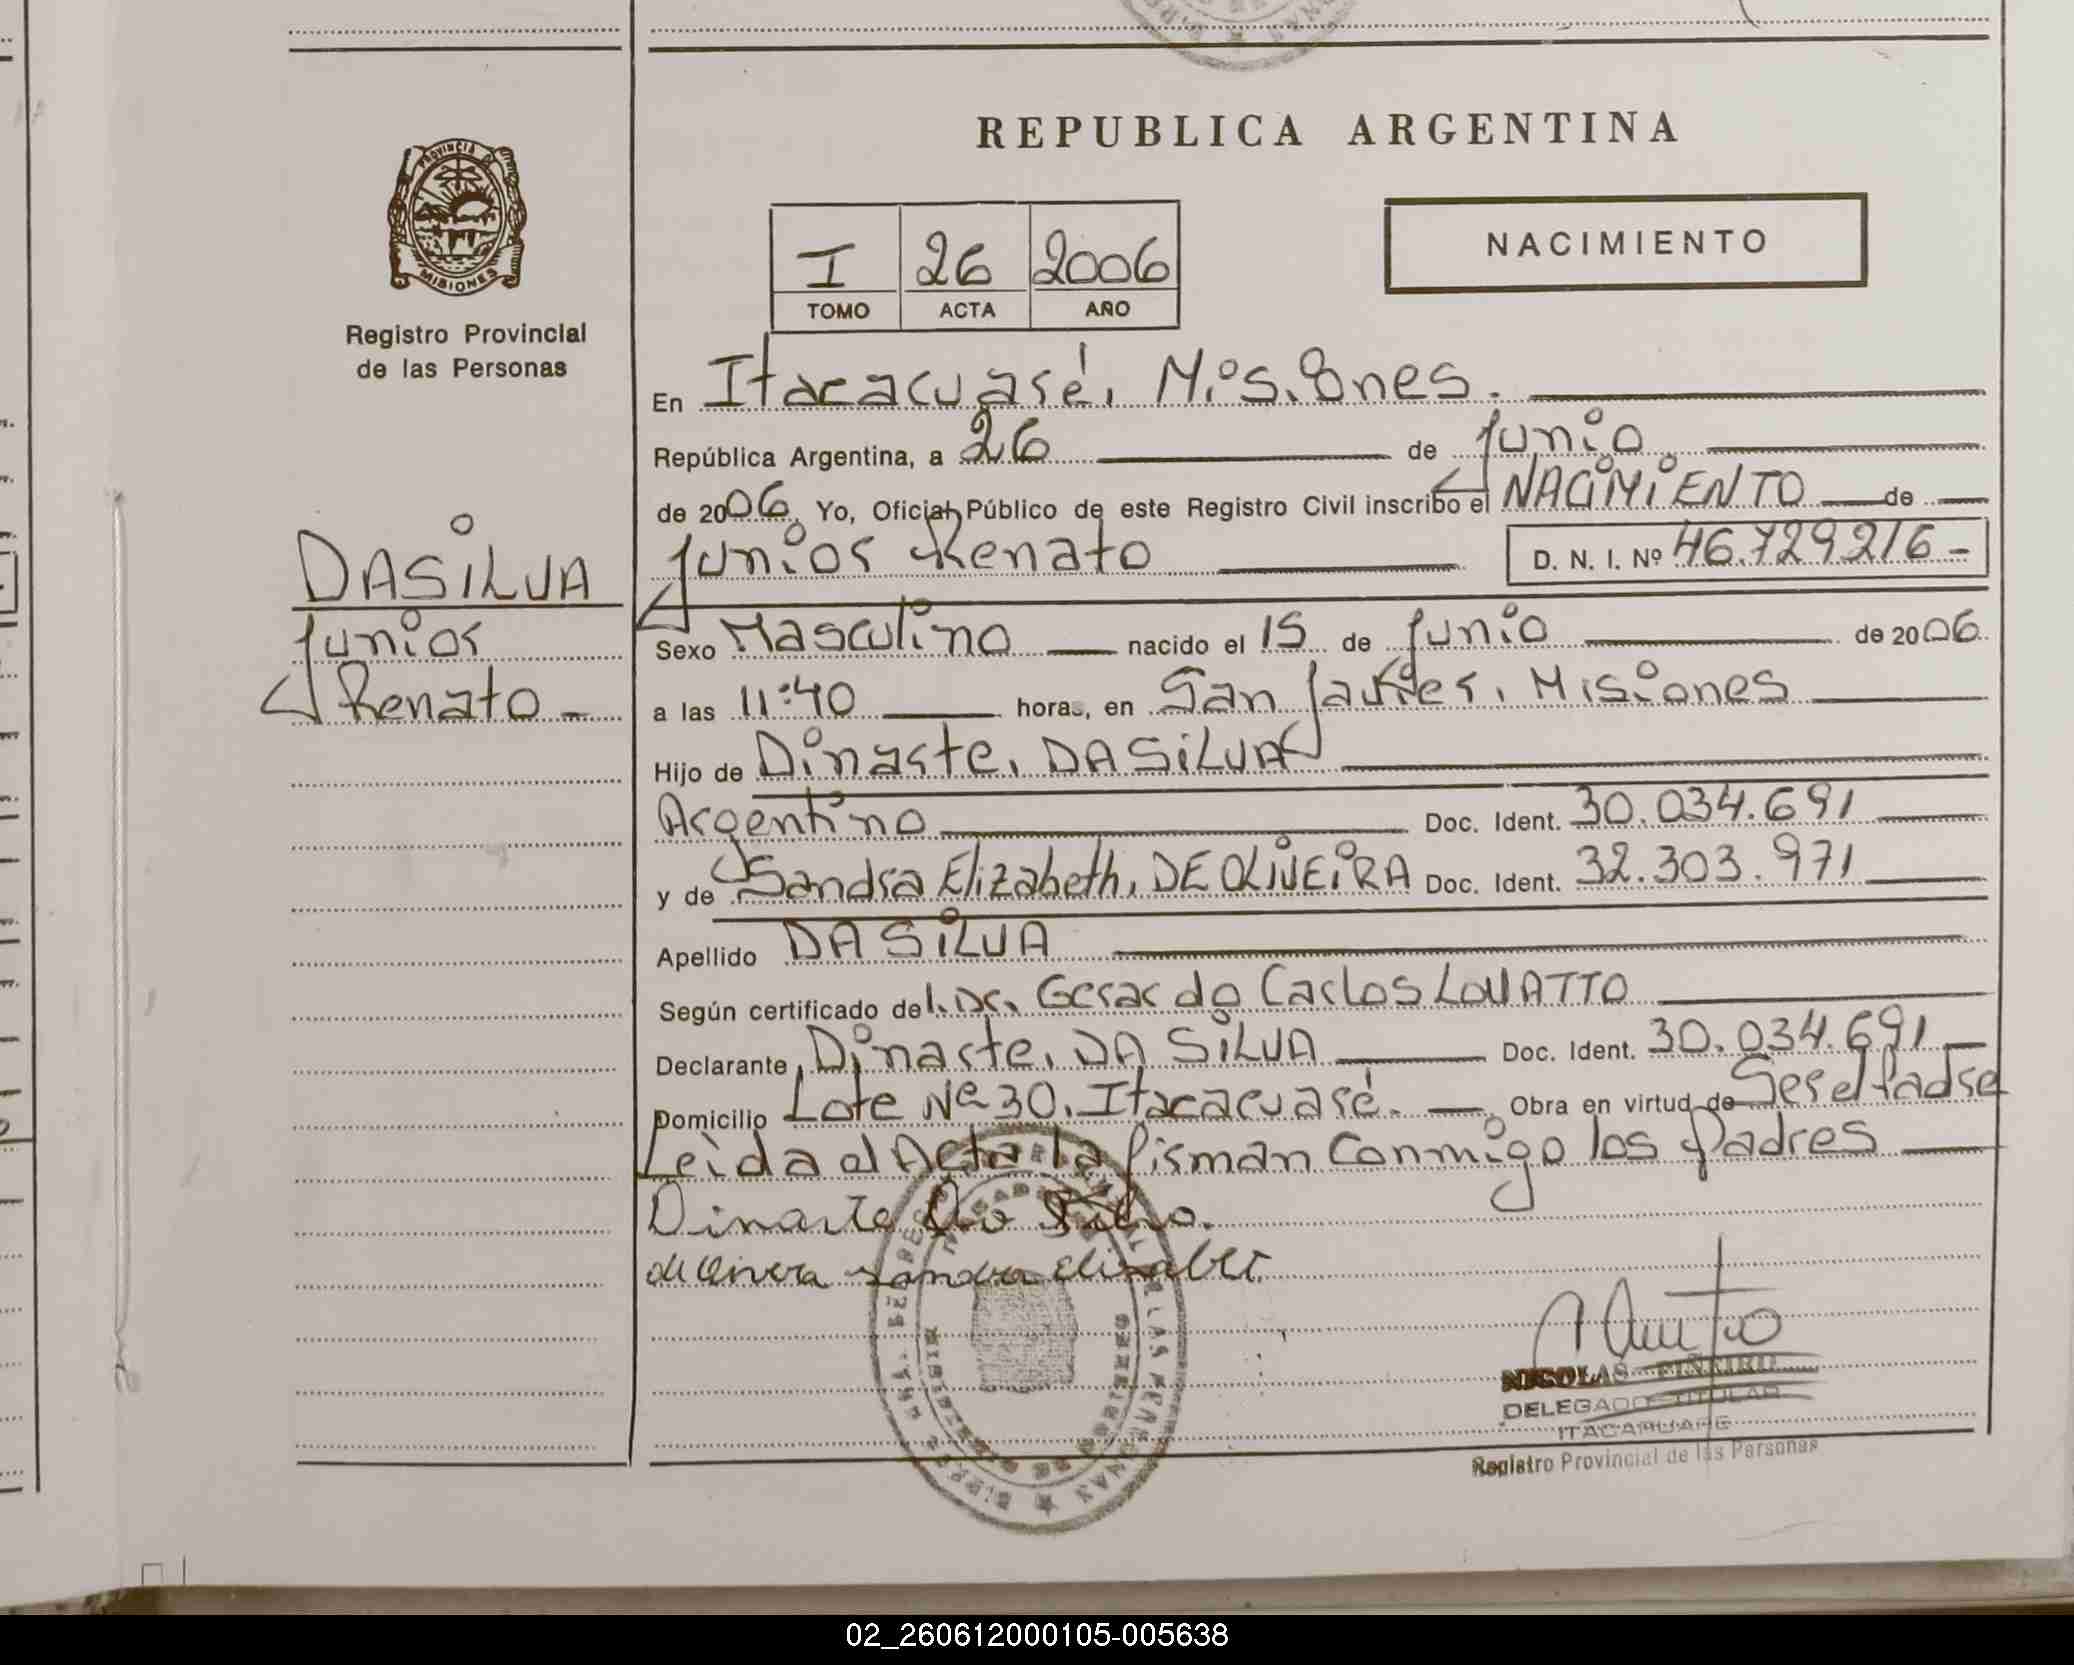 REPUBLICA ARGENTINA
PROVINCIA DE MISIONES
Registro Provincial
de las Personas
I 26 2006
TOMO ACTA AÑO
NACIMIENTO
En Itacaruaré, Misiones.
República Argentina, a 26 de Junio
de 2006, Yo, Oficial Público de este Registro Civil inscribo el NACIMIENTO de
Junior Renato D. N. I. Nº 46.729.216-
DASILVA
Junior
Renato-
Sexo Masculino nacido el 15 de Junio de 2006
a las 11:40 horas, en San Javier, Misiones
Hijo de Dinarte, DA SILVA
Argentino Doc. Ident. 30.034.691
y de Sandra Elizabeth, DE OLIVEIRA Doc. Ident. 32.303.971
Apellido DA SILVA
Según certificado del. Dr. Gerardo Carlos LOVATTO
Declarante Dinarte, DA SILVA Doc. Ident. 30.034.691
Domicilio Lote Nº 30, Itacaruaré. Obra en virtud de Ser el Padre
Leida el Acta la firman Conmigo los padres
Dinarte Da Silva.
sandra elisabet
NICOLAS PIÑEIRO
DELEGADO TITULAR
ITACARUARE
Registro Provincial de las Personas
02_260612000105-005638